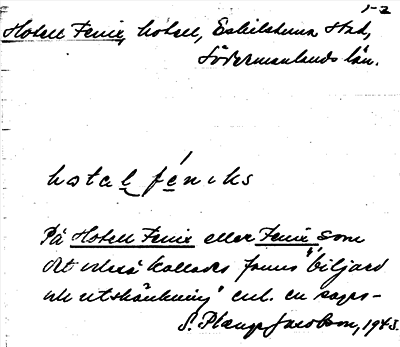 1-2
Hotell Fenix, hotell, Eskilstuna stad,
Södermanlands län.
hotal féniks
På Hotell Fenix eller Fenix som
det också kallades fanns "biljard
och utskänkning" enl. en sages-
S. Plange Jacobson, 1943.